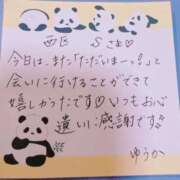 西区 Sさま♡
今日は、また「ただいまーっ!」と
会いに行けることができて
嬉しかったです♡いつもお心
遣いに感謝です!!
ゆうか